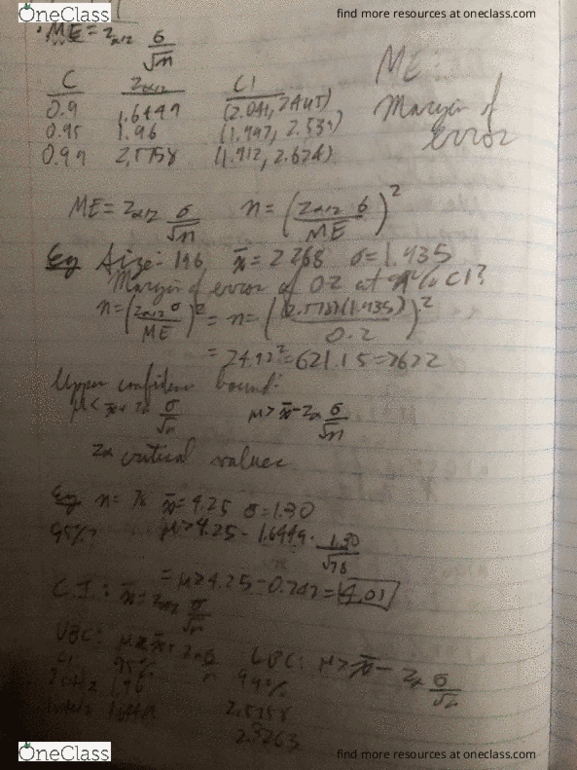 OneClass
find more resources at oneclass.com
ME = zα/2 σ/√n
C zα/2 CI
0.9 1.6449
0.95 1.96
0.99 2.5758 (1.912, 2.624)
ME:
Margin of
error
ME = zα/2 σ/√n n = (zα/2 σ/ME)²
Eg Size: 196 x̄ = 2.268 σ = 1.935
Margin of error of 0.2 at 99% CI?
n = (zα/2 σ/ME)² = n = (2.5758)(1.935)/0.2)²
= 24.92² = 621.15 = 7622
Upper confidence bound:
μ < x̄ + zα σ/√n μ > x̄ - zα σ/√n
zα critical values
Eg n = 76 x̄ = 4.25 σ = 1.30
95%? μ > 4.25 - 1.6449 · 1.30/√76
= μ > 4.25 - 0.242 = 4.01
C.I.: x̄ ± zα/2 σ/√n
UBC: LBC: μ > x̄ - zα σ/√n
CI 95% 99%
zα/2 1.96 2.5758
1.6449 2.3263
OneClass
find more resources at oneclass.com